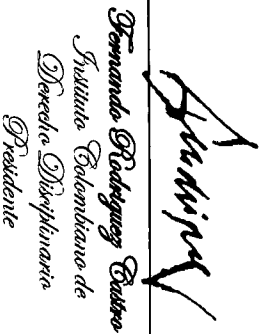 Fernando Rodríguez Castro
Instituto Colombiano de
Derecho Disciplinario
Presidente